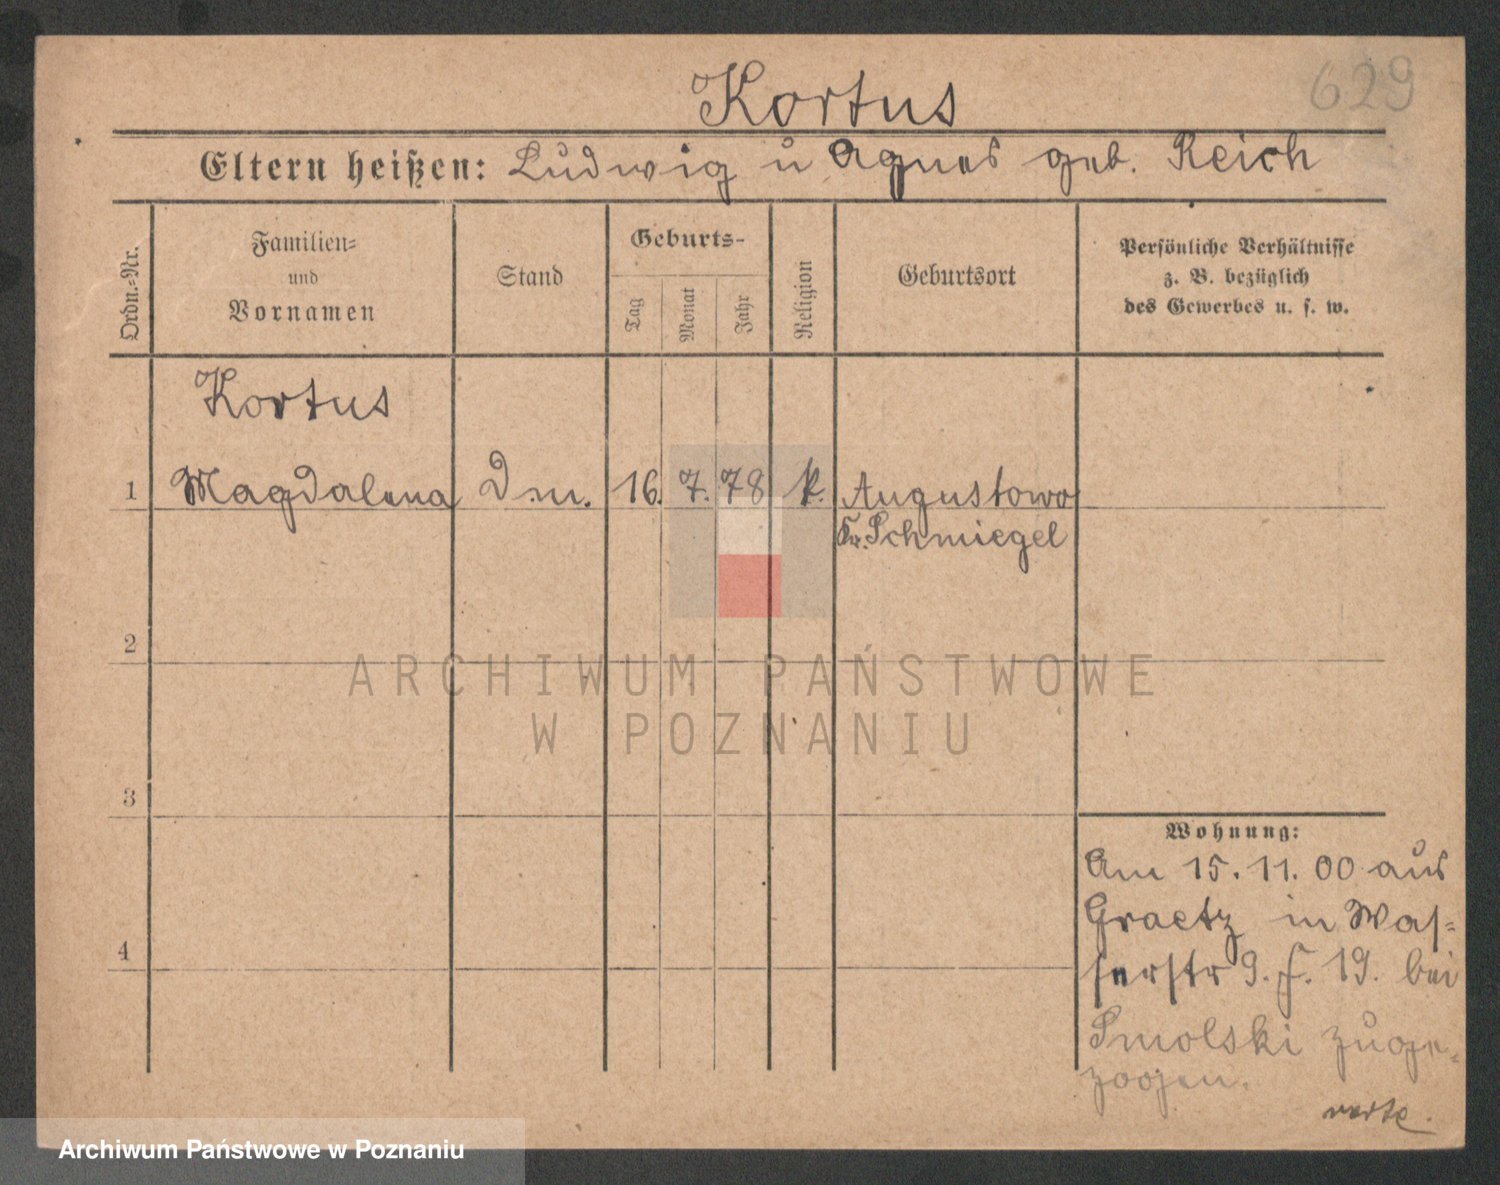 629
Kortus
Eltern heißen: Ludwig u Agnes geb. Reich
Ordn.-Nr.
Familien-
und
Vornamen
Stand
Geburts-
Tag
Monat
Jahr
Religion
Geburtsort
Persönliche Verhältnisse
z. B. bezüglich
des Gewerbes u. s. w.
Kortus
1 Magdalena 16. 7. 78 k. Augustowo
Kr. Schmiegel
2
ARCHIWUM PAŃSTWOWE
W POZNANIU
3
Wohnung:
Am 15. 11. 00 aus
Graetz in Was-
serstr 9. f. 19. bei
Smolski zuge-
zogen.
4
verte.
Archiwum Państwowe w Poznaniu